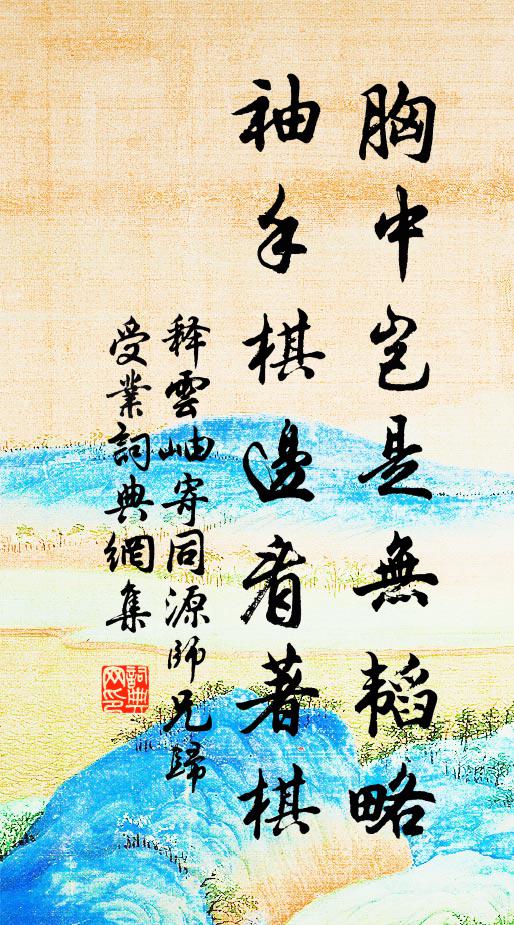 胸中豈是無韜略
袖手棋邊看著棋
释雲岫寄同源師兄歸
受業詞典網集
詞典網印